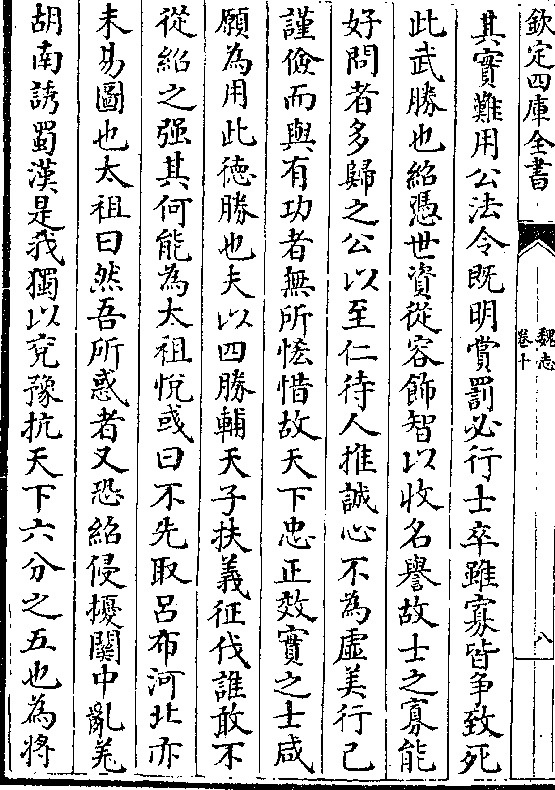 欽定四庫全書
魏志
卷十
八
其實難用公法令既明賞罰必行士卒雖寡皆争致死
此武勝也紹憑世資從容飾智以收名譽故士之寡能
好問者多歸之公以至仁待人推誠心不為虛美行己
謹儉而與有功者無所恡惜故天下忠正效實之士咸
願為用此徳勝也夫以四勝輔天子扶義征伐誰敢不
從紹之强其何能為太祖悅彧曰不先取吕布河北亦
未易圖也太祖曰然吾所惑者又恐紹侵擾關中亂羌
胡南誘蜀漢是我獨以兖豫抗天下六分之五也為將